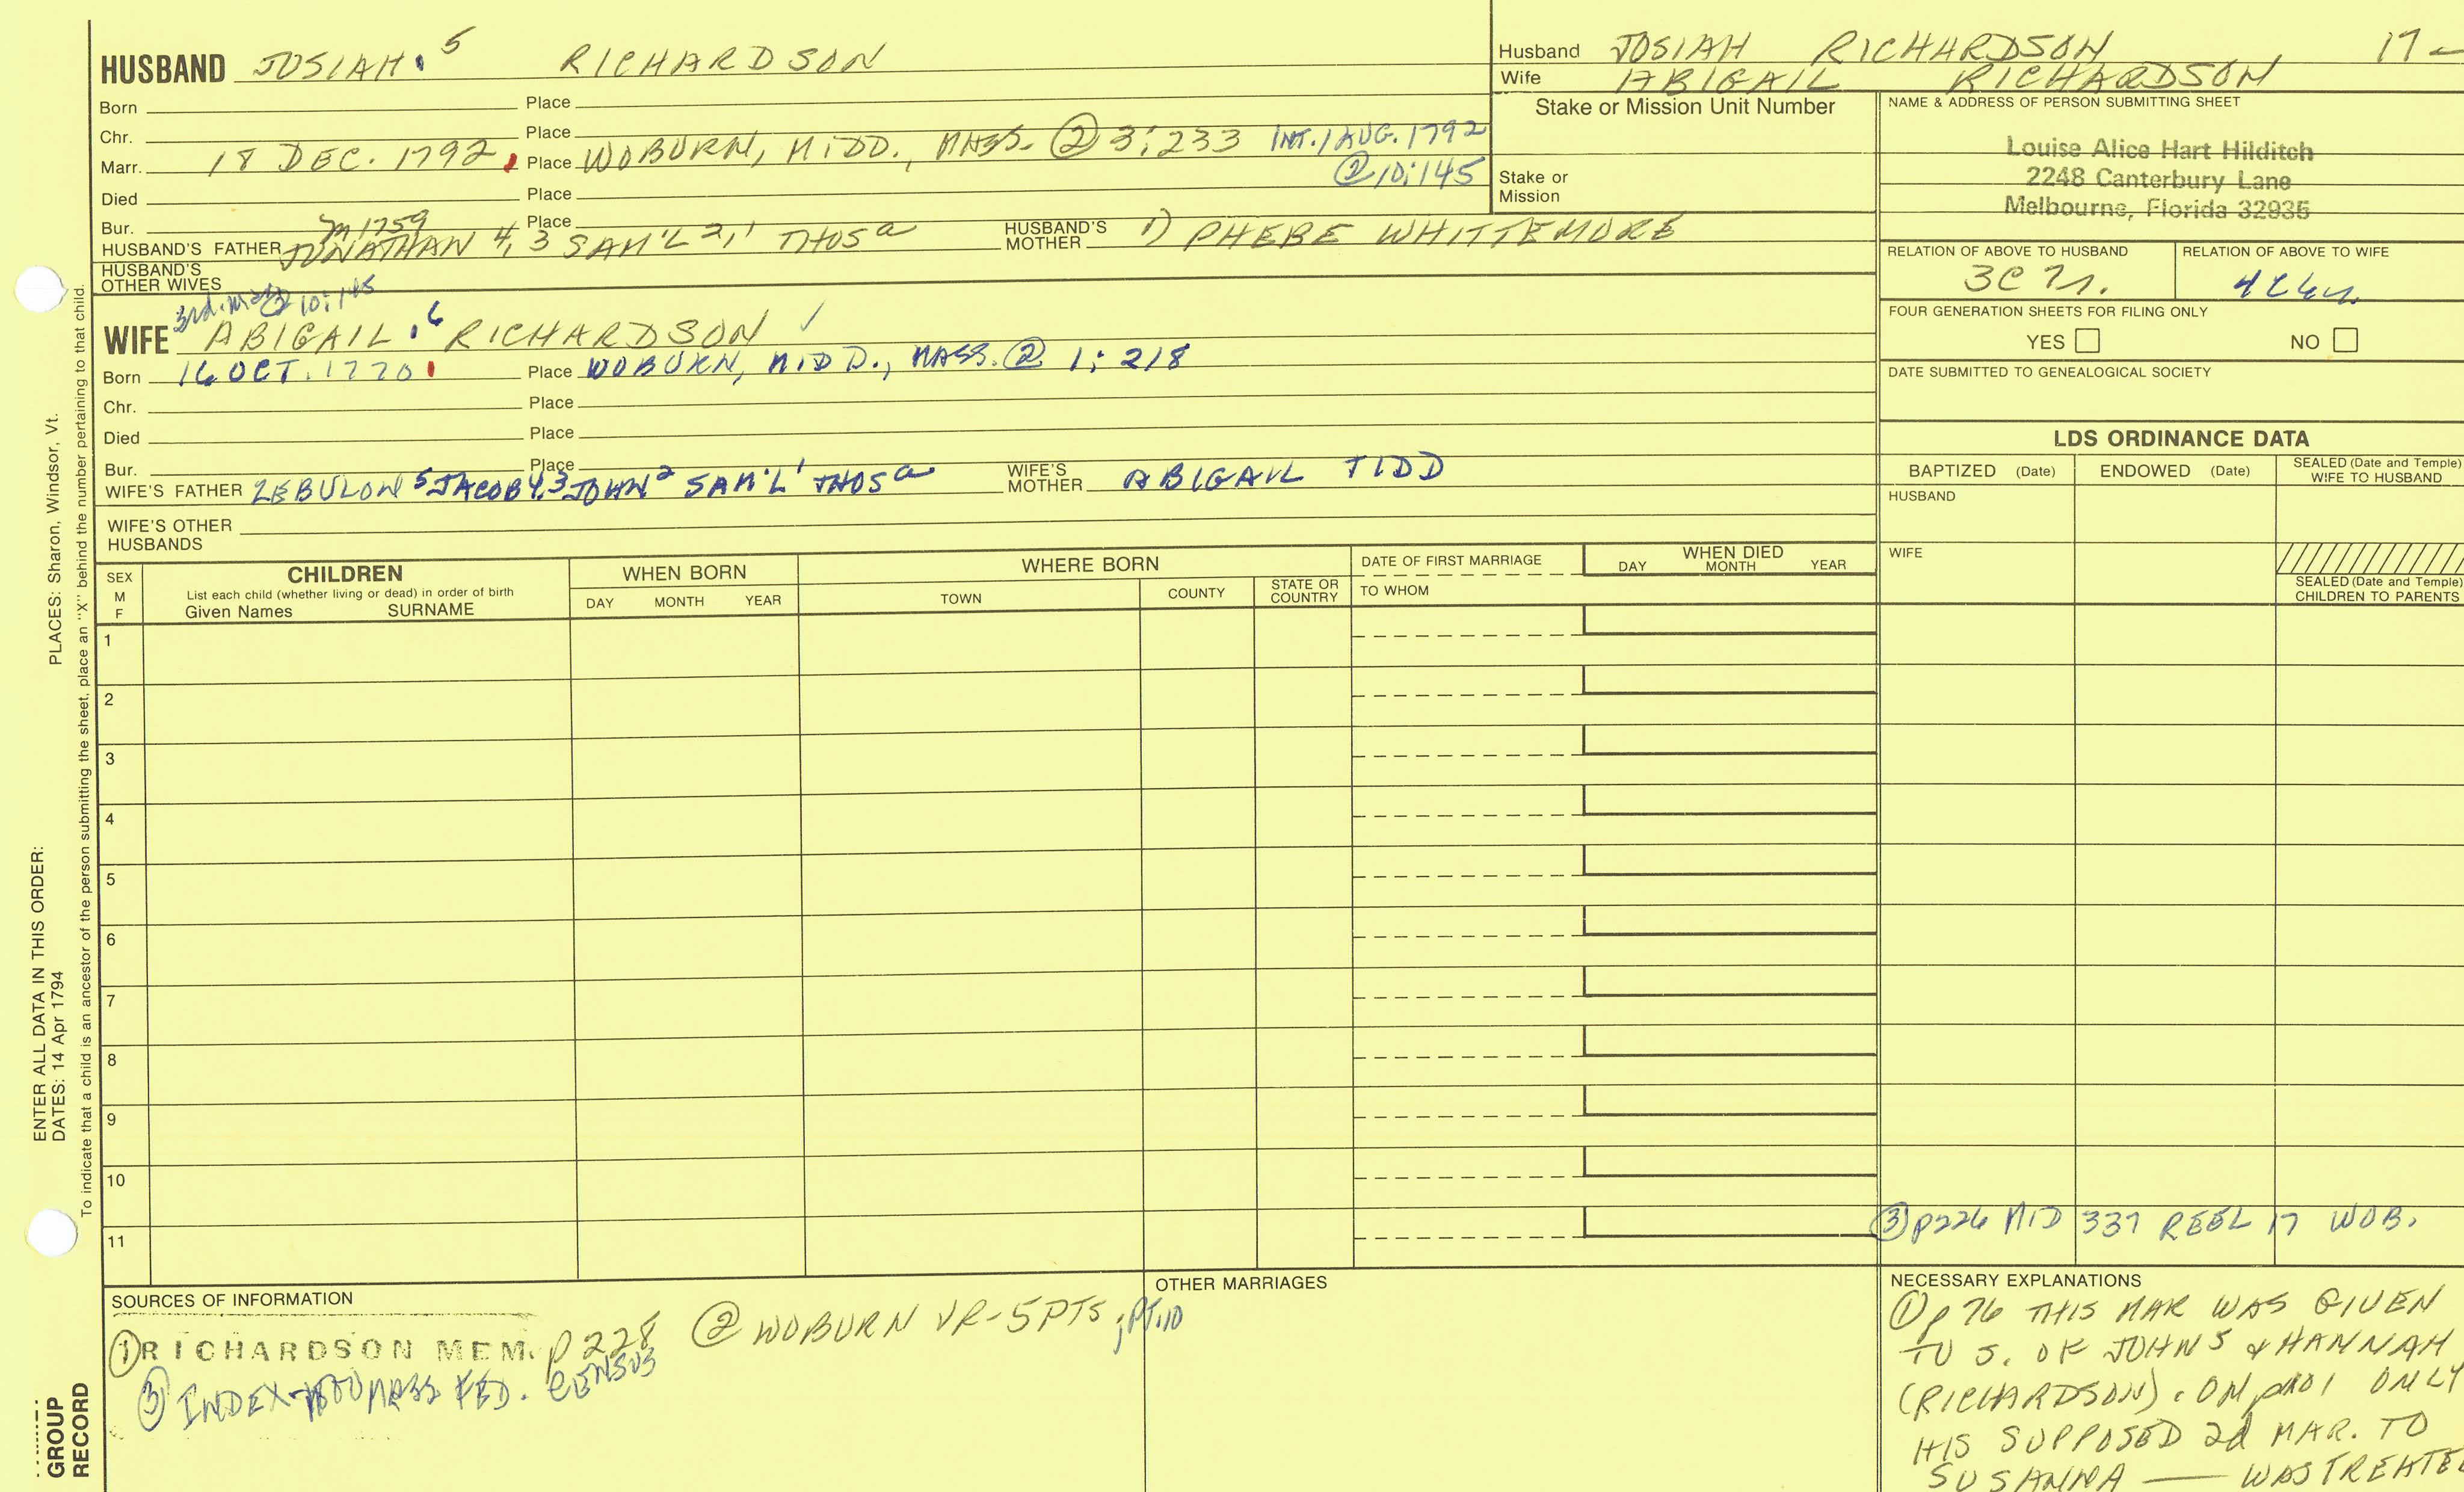 HUSBAND JOSIAH 5 RICHARDSON
Born Place
Chr. Place
Marr. 18 DEC. 1792 Place WOBURN, MIDD., MASS. @ 3:233 INT. 1 AUG. 1792
@ 10:145
Died Place
Bur. Place
m 1759
HUSBAND'S FATHER JONATHAN 4, 3 SAM'L 2, 1 THOS a HUSBAND'S MOTHER 1) PHEBE WHITTEMORE
HUSBAND'S OTHER WIVES
3rd. @ 10:145
WIFE ABIGAIL 6 RICHARDSON ✓
Born 16 OCT. 1770 Place WOBURN, MIDD., MASS. @ 1:218
Chr. Place
Died Place
Bur. Place
WIFE'S FATHER ZEBULON 5 JACOB 4, 3 JOHN 2 SAM'L 1 THOS a WIFE'S MOTHER ABIGAIL TIDD
WIFE'S OTHER HUSBANDS
Husband JOSIAH RICHARDSON 17-
Wife ABIGAIL RICHARDSON
Stake or Mission Unit Number
Stake or
Mission
NAME & ADDRESS OF PERSON SUBMITTING SHEET
Louise Alice Hart Hilditch
2248 Canterbury Lane
Melbourne, Florida 32935
RELATION OF ABOVE TO HUSBAND RELATION OF ABOVE TO WIFE
3C 7r. 4C6r.
FOUR GENERATION SHEETS FOR FILING ONLY
YES NO
DATE SUBMITTED TO GENEALOGICAL SOCIETY
LDS ORDINANCE DATA
BAPTIZED (Date) ENDOWED (Date) SEALED (Date and Temple) WIFE TO HUSBAND
HUSBAND
WIFE
SEALED (Date and Temple) CHILDREN TO PARENTS
SEX M F
CHILDREN
List each child (whether living or dead) in order of birth
Given Names SURNAME
WHEN BORN
DAY MONTH YEAR
WHERE BORN
TOWN COUNTY STATE OR COUNTRY
DATE OF FIRST MARRIAGE
TO WHOM
WHEN DIED
DAY MONTH YEAR
1
2
3
4
5
6
7
8
9
10
11
③ p226 MID 337 REEL 17 WOB.
SOURCES OF INFORMATION
① RICHARDSON MEM. p 228 ② WOBURN VR-5PTS; PT.10
③ INDEX-1800 MASS FED. CENSUS
OTHER MARRIAGES
NECESSARY EXPLANATIONS
① p 76 THIS MAR WAS GIVEN
TO J. OF JOHN 5 & HANNAH
(RICHARDSON). ON ONLY
HIS SUPPOSED 2d MAR. TO
SUSANNA — WAS TREATED
ENTER ALL DATA IN THIS ORDER:
DATES: 14 Apr 1794 PLACES: Sharon, Windsor, Vt.
To indicate that a child is an ancestor of the person submitting the sheet, place an "X" behind the number pertaining to that child.
GROUP
RECORD